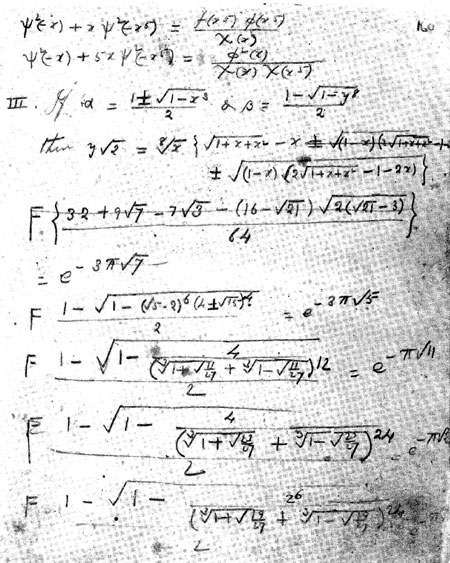 ψ²(-x) + x ψ²(-x⁵) = f(x⁵) φ(x⁵) / χ(x)
ψ²(-x) + 5x ψ²(-x⁵) = φ²(x) / χ(x) χ(x⁵)
III. If α = (1 ± √(1-x⁸))/2 & β = (1 - √(1-y⁸))/2
then y√2 = ⁸√x { √(1+x+x²) - x ± √((1-x)(2√(1+x+x²) -
± √((1-x)(2√(1+x+x²) - 1 - 2x)) }
F { (32 + 9√7 - 7√3 - (16 - √21) √(2(√21 - 3))) / 64 }
= e^(-3π√7)
F (1 - √(1 - (√5-2)⁶ (4±√15)⁴))/2 = e^(-3π√5)
F (1 - √(1 - 4/(∛(1+√(11/27)) + ∛(1-√(11/27)))¹²))/2 = e^(-π√11)
F (1 - √(1 - 4/(∛(1+√(23/27)) + ∛(1-√(23/27)))²⁴))/2 = e^(-π√
F (1 - √(1 - 2⁶/(∛(1+√(19/27)) + ∛(1-√(19/27)))²⁴))/2